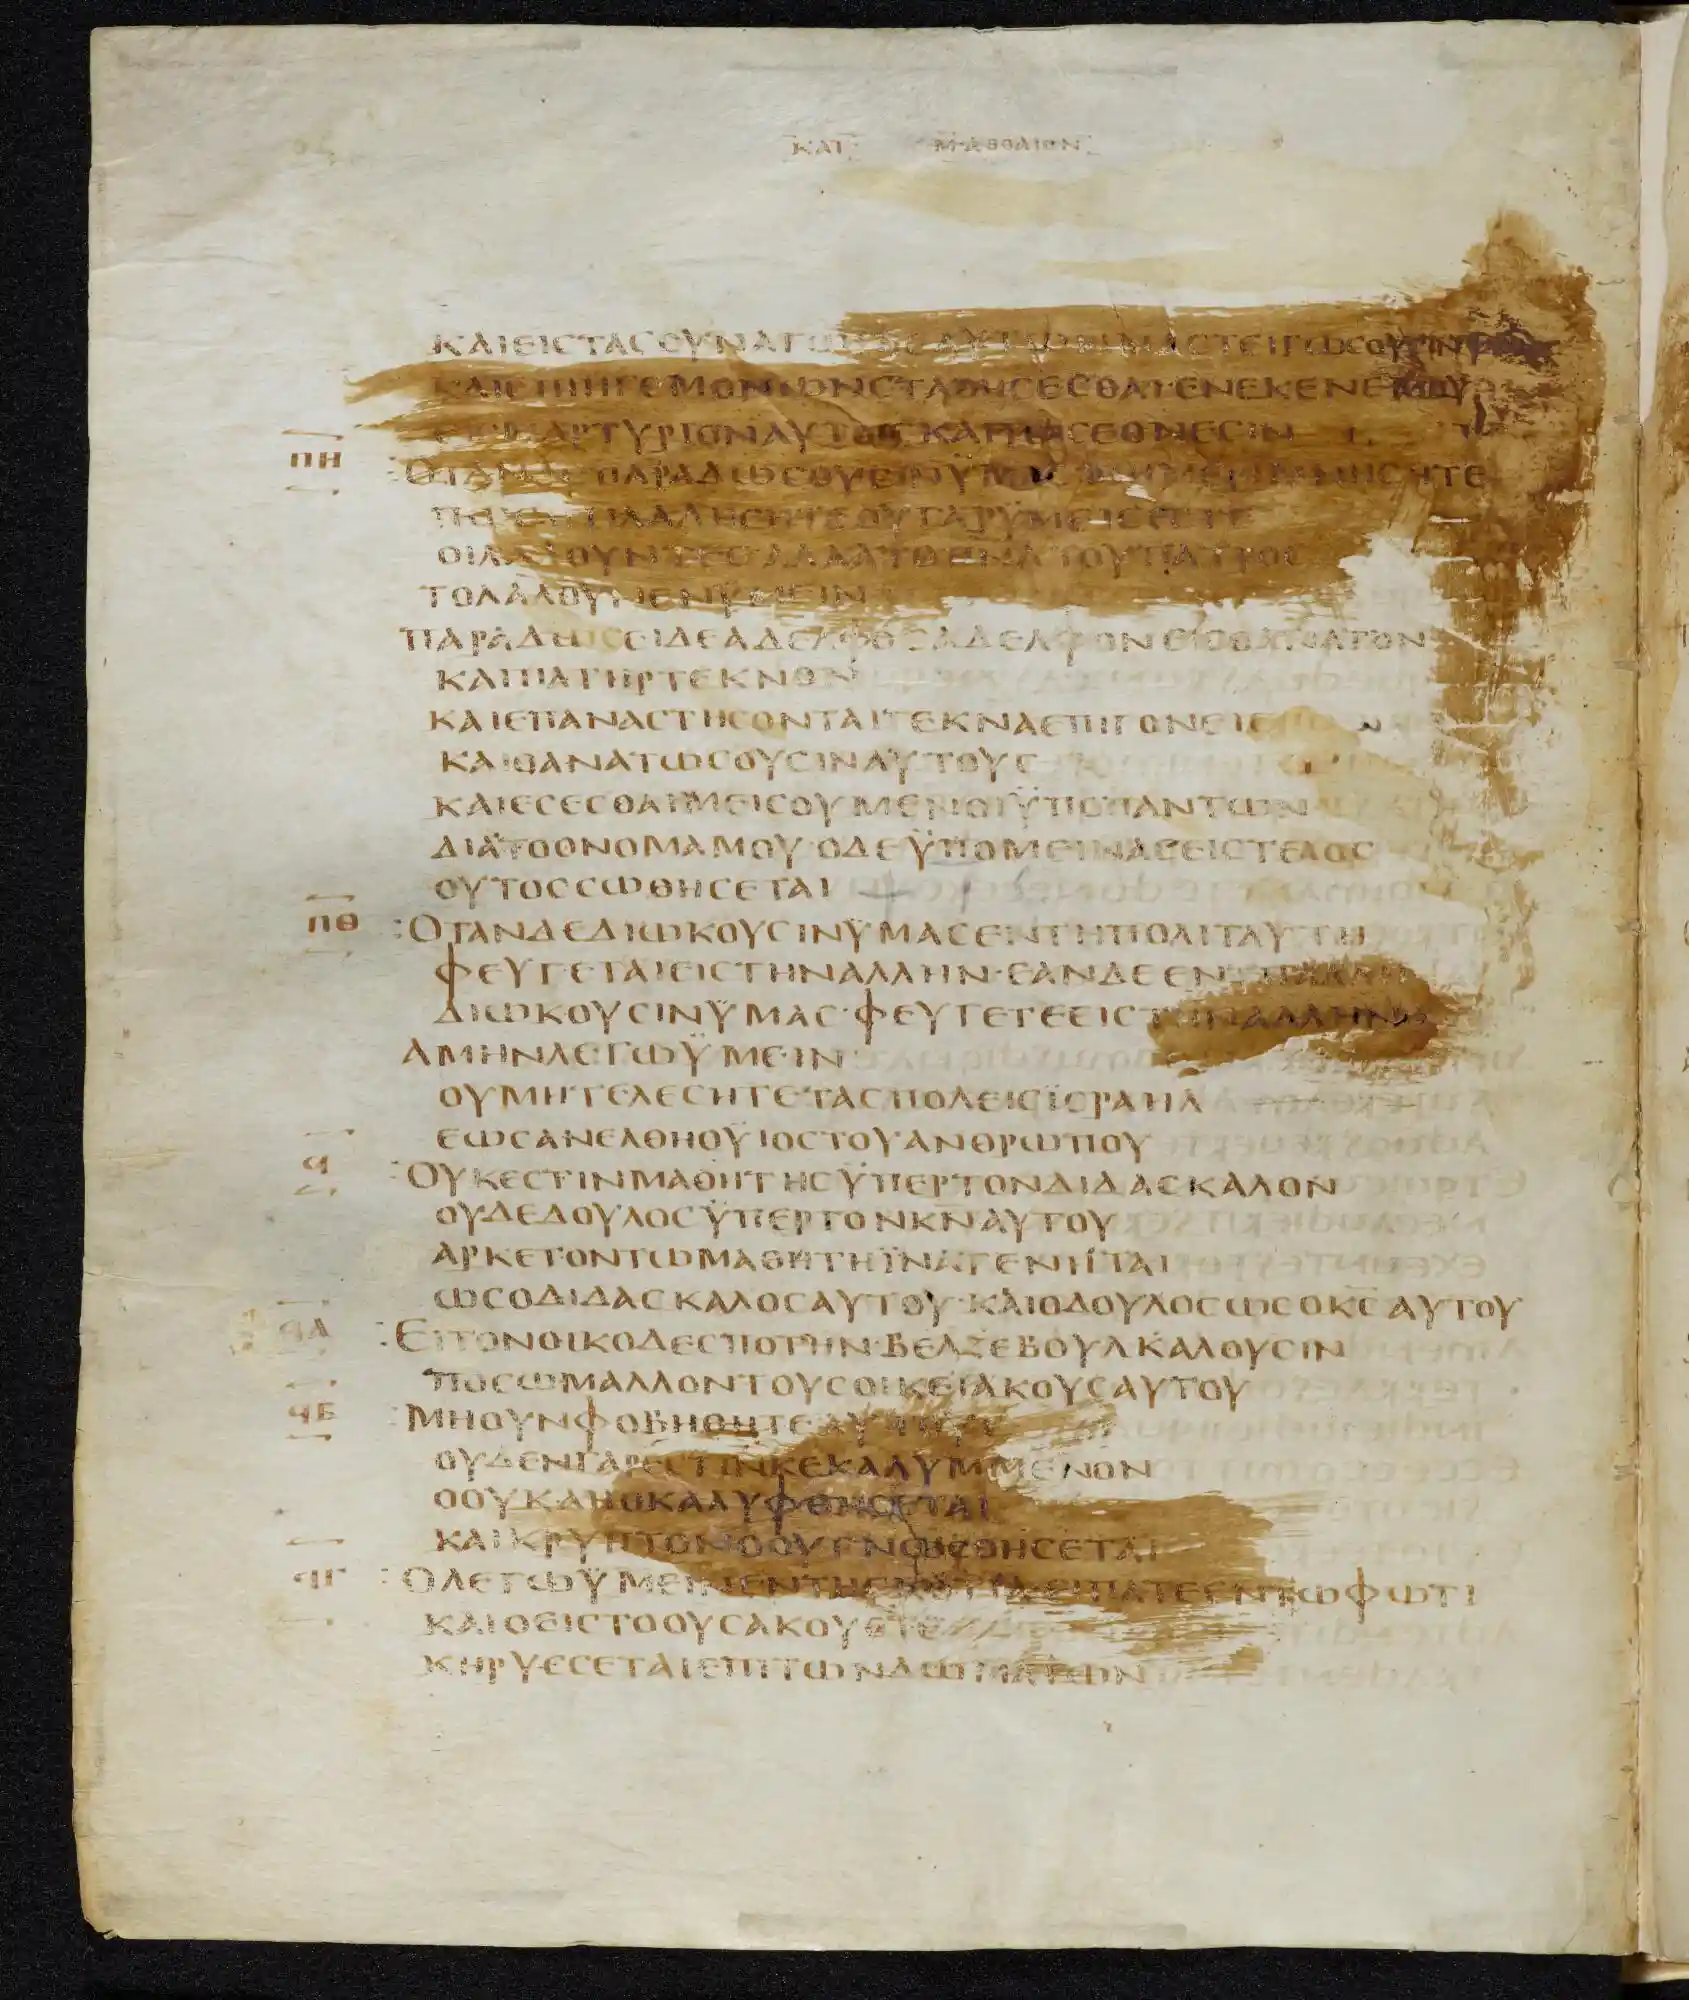 ΚΑΤ ΜΑΘΘΑΙΟΝ
ΚΑΙΕΙCΤΑCCΥΝΑΓΩΓΑC ΑΥΤΩΝ ΜΑCΤΕΙΓΩCΟΥCΙΝ
ΚΑΙΕΠΙΗΓΕΜΟΝΩΝCΤΑΘΗCΕCΘΑΙ·ΕΝΕΚΕΝΕΜΟΥ
ΕΙCΜΑΡΤΥΡΙΟΝΑΥΤΟΙC ΚΑΙΤΟΙCΕΘΝΕCΙΝ
ΠΗ :ΟΤΑΝΔΕ ΠΑΡΑΔΩCΟΥCΕΙΝΫΜΑC ΜΗΜΕΡΙΜΝΗCΗΤΕ
ΠΩC ΛΑΛΗCΗΤΕΟΥΓΑΡΫΜΕΙCΕCΤΕ
ΟΙΛΑΛΟΥΝΤΕC ΑΛΛΑΤΟ ΤΟΥΠΑΤΡΟC
ΤΟΛΑΛΟΥΜΕΝΫΜΕΙΝ
ΠΑΡΑΔΩCΕΙΔΕΑΔΕΛΦΟCΑΔΕΛΦΟΝΕΙCΘΑΝΑΤΟΝ
ΚΑΙΠΑΤΗΡΤΕΚΝΟΝ
ΚΑΙΕΠΑΝΑCΤΗCΟΝΤΑΙΤΕΚΝΑΕΠΙΓΟΝΕΙC
ΚΑΙΘΑΝΑΤΩCΟΥCΙΝΑΥΤΟΥC
ΚΑΙΕCΕCΘΑΙΜΕΙCΟΥΜΕΝΟΙΫΠΟΠΑΝΤΩΝ
ΔΙΑΤΟΟΝΟΜΑΜΟΥ·ΟΔΕΫΠΟΜΕΙΝΑCΕΙCΤΕΛΟC
ΟΥΤΟCCΩΘΗCΕΤΑΙ
ΠΘ :ΟΤΑΝΔΕΔΙΩΚΟΥCΙΝΫΜΑCΕΝΤΗΠΟΛΙΤΑΥΤΗ
ΦΕΥΓΕΤΑΙΕΙCΤΗΝΑΛΛΗΝ·ΕΑΝΔΕΕΝΤΗΑΛΛΗ
ΔΙΩΚΟΥCΙΝΫΜΑC·ΦΕΥΓΕΤΕΕΙCΤΗΝΑΛΛΗΝ
ΑΜΗΝΛΕΓΩΫΜΕΙΝ
ΟΥΜΗΤΕΛΕCΗΤΕΤΑCΠΟΛΕΙCΪCΡΑΗΛ
ΕΩCΑΝΕΛΘΗΟΫΙΟCΤΟΥΑΝΘΡΩΠΟΥ
Ϥ :ΟΥΚΕCΤΙΝΜΑΘΗΤΗCΫΠΕΡΤΟΝΔΙΔΑCΚΑΛΟΝ
ΟΥΔΕΔΟΥΛΟCΫΠΕΡΤΟΝΚΝΑΥΤΟΥ
ΑΡΚΕΤΟΝΤΩΜΑΘΗΤΗΪΝΑΓΕΝΗΤΑΙ
ΩCΟΔΙΔΑCΚΑΛΟCΑΥΤΟΥ·ΚΑΙΟΔΟΥΛΟCΩCΟΚC̅ΑΥΤΟΥ
ϤΑ :ΕΙΤΟΝΟΙΚΟΔΕCΠΟΤΗΝ·ΒΕΛΖΕΒΟΥΛΚΑΛΟΥCΙΝ
ΠΟCΩΜΑΛΛΟΝΤΟΥCΟΙΚΕΙΑΚΟΥCΑΥΤΟΥ
ϤΒ :ΜΗΟΥΝΦΟΒΗΘΗΤΕΑΥΤΟΥC
ΟΥΔΕΝΓΑΡΕCΤΙΝΚΕΚΑΛΥΜΜΕΝΟΝ
ΟΟΥΚΑΠΟΚΑΛΥΦΘΗCΕΤΑΙ
ΚΑΙΚΡΥΠΤΟΝΟΟΥΓΝΩCΘΗCΕΤΑΙ
ϤΓ :ΟΛΕΓΩΫΜΕΙΝΕΝΤΗCΚΟΤΙΑΕΙΠΑΤΕΕΝΤΩΦΩΤΙ
ΚΑΙΟΕΙCΤΟΟΥCΑΚΟΥΕΤΕ
ΚΗΡΥCCΕΤΑΙΕΠΙΤΩΝΔΩΜΑΤΩΝ